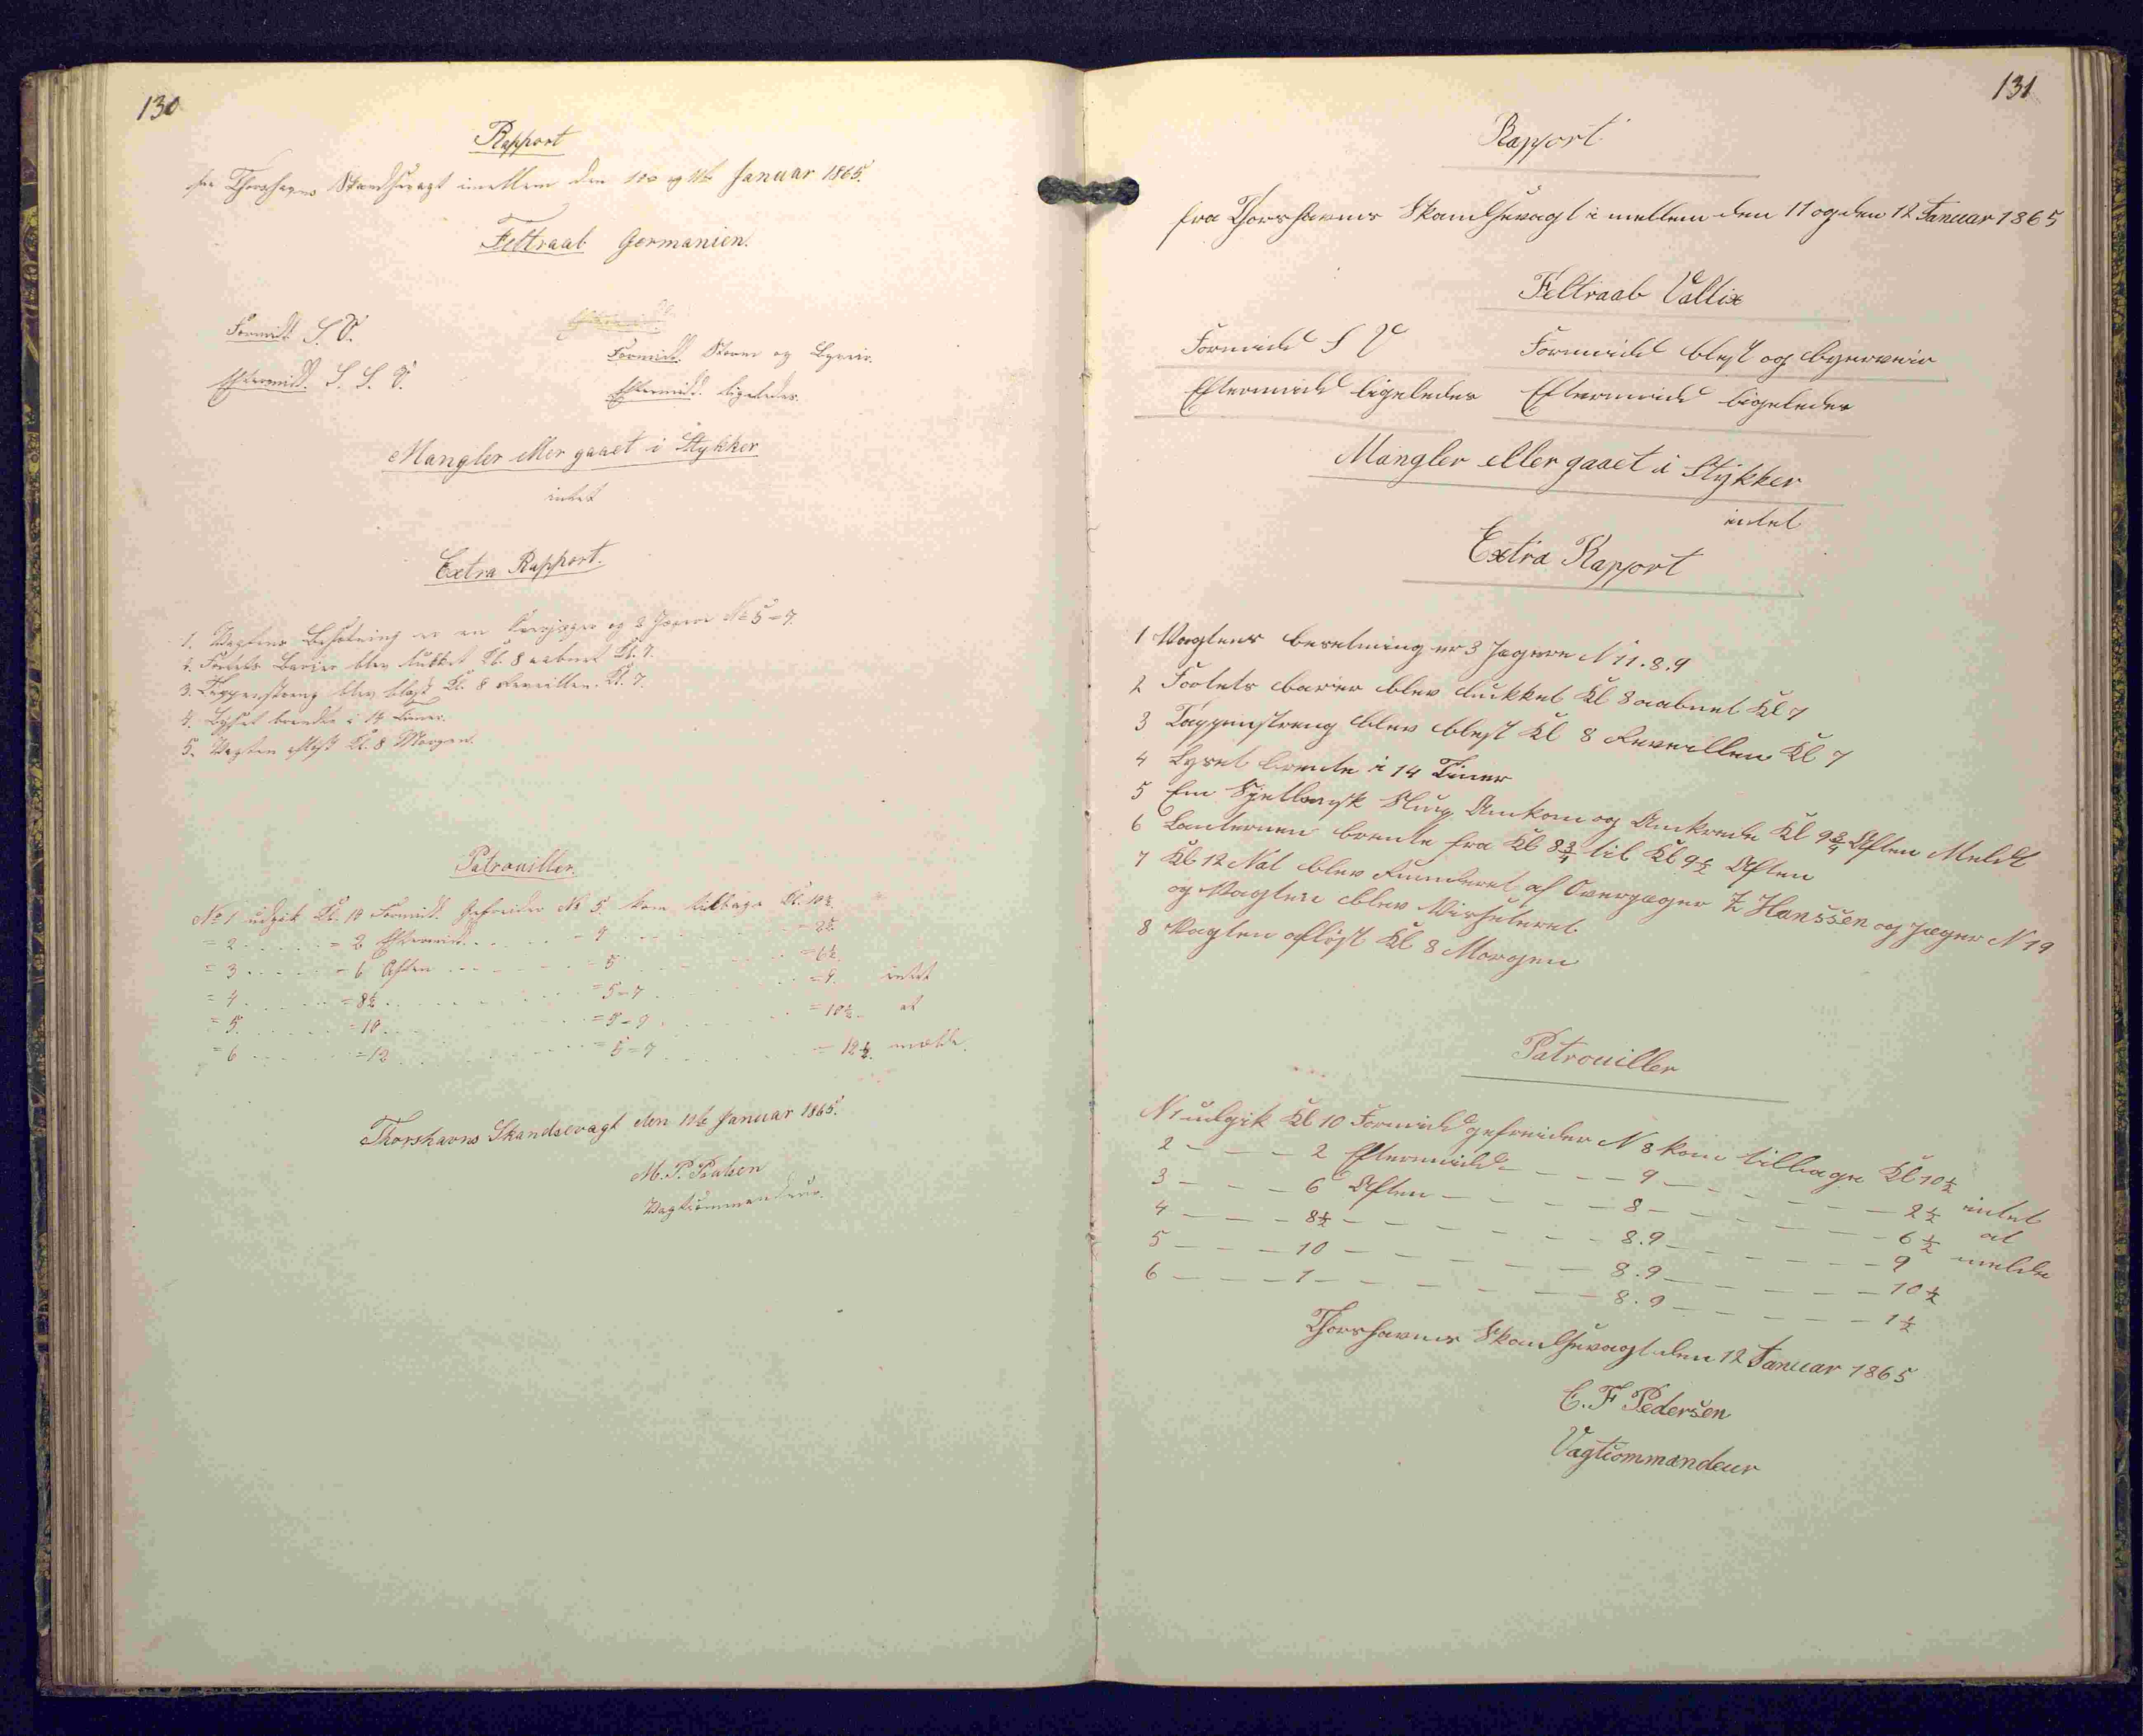 130
Rapport
fra Thorshavns Skandsevagt imellem den 10 og 11te Januar 1865.
Feltraab Germanien.
Formidd. S. V.
Formidd. Storm og Byveir.
Eftermidd. S. S. V.
Eftermidd. ligeledes.
Mangler eller gaaet i Stykker
intet
Extra Rapport.
1. Vagtens Besætning er en Overjæger og 2 Jægere No 5 = 7.
2. Fortets Barier blev lukket Kl. 8 aabnet Kl. 7.
3. Tappenstreng blev blæst Kl. 8 Reveillen Kl. 7.
4. Lyset brændte i 14 Timer.
5. Vagten afløst Kl. 8 Morgen.
Patrouiller
No 1 udgik Kl. 10 Formidd. Gefreider No 5. kom tilbage Kl. 10½
= 2 = 2 Eftermidd. = 2½
= 3 = 6 Aften = 5 = 6½
= 4 = 8½ = 5 = 7 = 9. intet
= 5. = 10 = 10½ at
= 6 = 12 = 5 = 7 = 12½. melde.
Thorshavns Skandsevagt den 11te Januar 1865.
M. P. Poulsen
Vagtcommandeur.
131
Rapport
fra Thorshavns Skandsevagt i mellem den 11 og den 12 Januar 1865
Feltraab Vallix
Formidd S V Formidd blest og byerveir
Eftermidd ligeledes Eftermidd ligeledes
Mangler eller gaaet i Stykker
intet
Extra Rapport
1 Vagtens besetming er 3 Jægere N 11. 8. 9
2 Fortets barier blev lukket Kl 8 aabnet Kl 7
3 Tappenstreng blev blest Kl 8 Reveillen Kl 7
4 Lyset brente i 14 Timer
5 Em Sjetlansk Slup Amkom og Amkrede Kl 9¾ Aften Meldt
6 Lanternen brente fra Kl 8¾ til Kl 9½ Aften
7 Kl 12 Nat blev Runderet af Overjæger Z Hanssen og Jæger N 19
og Vagten blev Visiteret
8 Vagten afløst Kl 8 Morgen
Patrouiller
N 1 udgik Kl 10 Formidd gefreider N 8 kom tilbage Kl 10½
2 — — — 2 Eftermidd — — — 9 — — — 2½ intet
3 — — — 6 Aften — — — 8 — — — 6½ at
4 — — — 8½ — — — 8. 9 — — — 9 melde
5 — — — 10 — — — 8. 9 — — — 10½
6 — — — 1 — — — 8. 9 — — — 1½
Thorshavns Skandsevagt den 12 Januar 1865
C. F Pedersen
Vagtcommandeur